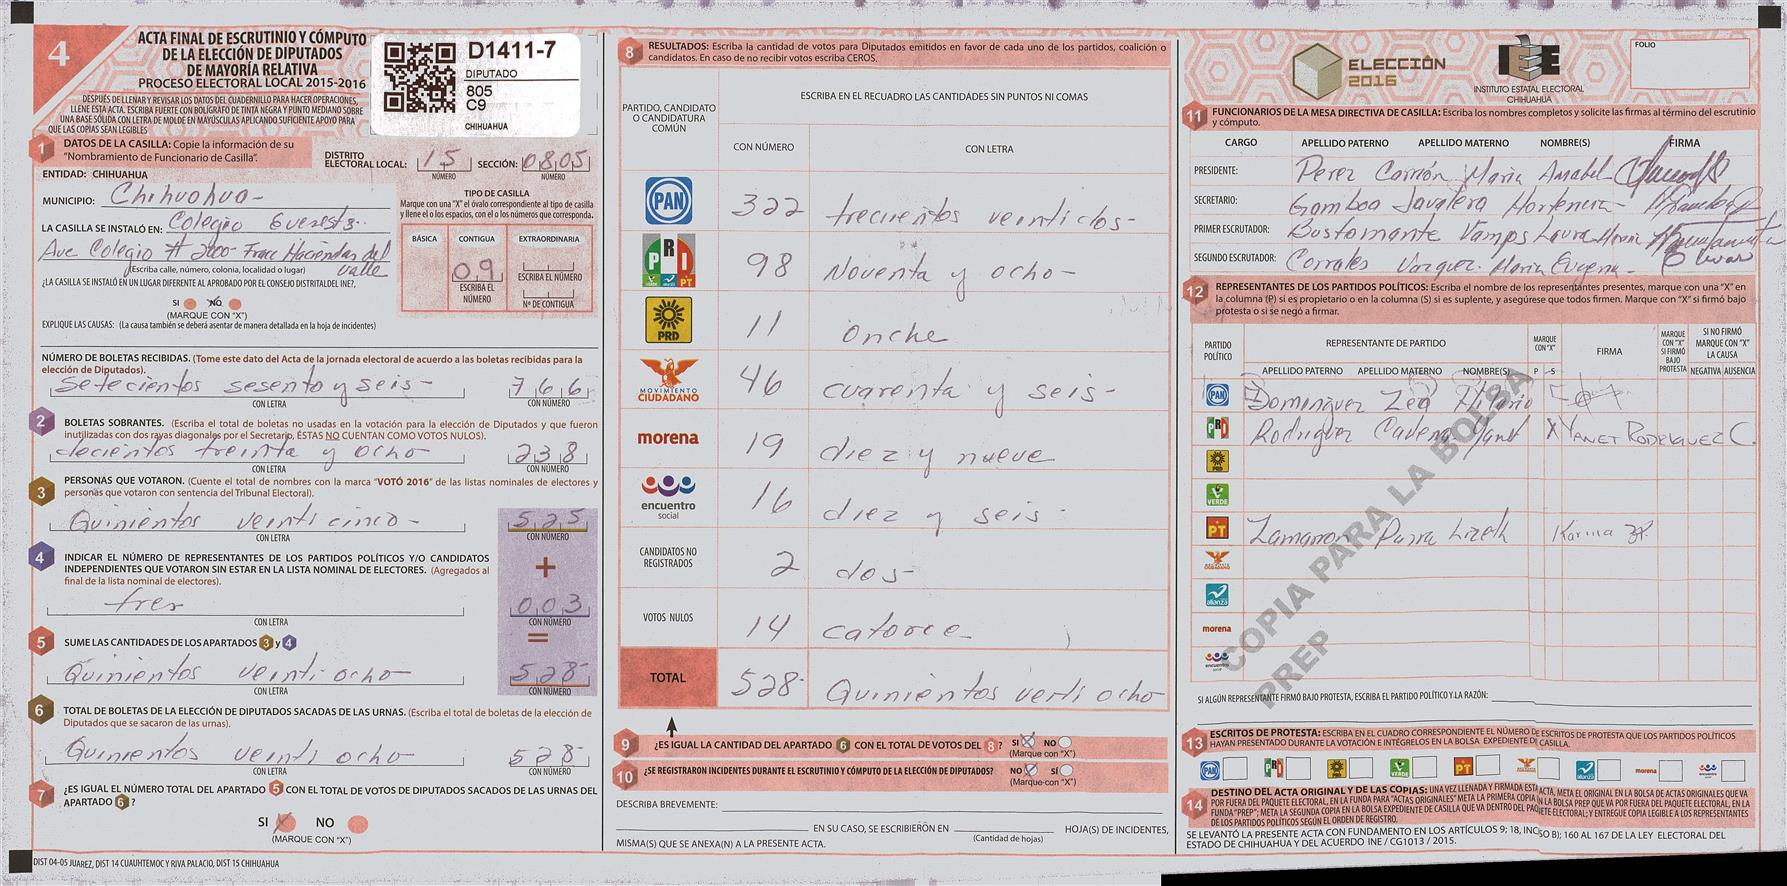 4
ACTA FINAL DE ESCRUTINIO Y CÓMPUTO
DE LA ELECCIÓN DE DIPUTADOS
DE MAYORÍA RELATIVA
PROCESO ELECTORAL LOCAL 2015-2016
DESPUÉS DE LLENAR Y REVISAR LOS DATOS DEL CUADERNILLO PARA HACER OPERACIONES,
LLENE ESTA ACTA. ESCRIBA FUERTE CON BOLÍGRAFO DE TINTA NEGRA Y PUNTO MEDIANO SOBRE
UNA BASE SÓLIDA CON LETRA DE MOLDE EN MAYÚSCULAS APLICANDO SUFICIENTE APOYO PARA
QUE LAS COPIAS SEAN LEGIBLES
D1411-7
DIPUTADO
805
C9
CHIHUAHUA
1 DATOS DE LA CASILLA: Copie la información de su
"Nombramiento de Funcionario de Casilla".
DISTRITO ELECTORAL LOCAL: 15 SECCIÓN: 0805
NÚMERO NÚMERO
ENTIDAD: CHIHUAHUA
MUNICIPIO: Chihuahua-
LA CASILLA SE INSTALÓ EN: Colegio Everest
Ave Colegio # 2200- Fracc Haciendas del valle
(Escriba calle, número, colonia, localidad o lugar)
¿LA CASILLA SE INSTALÓ EN UN LUGAR DIFERENTE AL APROBADO POR EL CONSEJO DISTRITAL DEL INE?,
SI NO
(MARQUE CON "X")
EXPLIQUE LAS CAUSAS: (La causa también se deberá asentar de manera detallada en la hoja de incidentes)
TIPO DE CASILLA
Marque con una "X" el óvalo correspondiente al tipo de casilla
y llene el o los espacios, con el o los números que corresponda.
BÁSICA CONTIGUA EXTRAORDINARIA
09
ESCRIBA EL NÚMERO
ESCRIBA EL NÚMERO
Nº DE CONTIGUA
NÚMERO DE BOLETAS RECIBIDAS. (Tome este dato del Acta de la jornada electoral de acuerdo a las boletas recibidas para la
elección de Diputados).
Setecientos sesenta y seis- 766
CON LETRA CON NÚMERO
2 BOLETAS SOBRANTES. (Escriba el total de boletas no usadas en la votación para la elección de Diputados y que fueron
inutilizadas con dos rayas diagonales por el Secretario, ÉSTAS NO CUENTAN COMO VOTOS NULOS).
decientos treinta y ocho 238
CON LETRA CON NÚMERO
3 PERSONAS QUE VOTARON. (Cuente el total de nombres con la marca "VOTÓ 2016" de las listas nominales de electores y
personas que votaron con sentencia del Tribunal Electoral).
Quinientos veinti cinco- 525
CON LETRA CON NÚMERO
+
4 INDICAR EL NÚMERO DE REPRESENTANTES DE LOS PARTIDOS POLÍTICOS Y/O CANDIDATOS
INDEPENDIENTES QUE VOTARON SIN ESTAR EN LA LISTA NOMINAL DE ELECTORES. (Agregados al
final de la lista nominal de electores).
tres 003
CON LETRA CON NÚMERO
=
5 SUME LAS CANTIDADES DE LOS APARTADOS 3 y 4
Quinientos veinti ocho 528
CON LETRA CON NÚMERO
6 TOTAL DE BOLETAS DE LA ELECCIÓN DE DIPUTADOS SACADAS DE LAS URNAS. (Escriba el total de boletas de la elección de
Diputados que se sacaron de las urnas).
Quinientos veinti ocho 528
CON LETRA CON NÚMERO
7 ¿ES IGUAL EL NÚMERO TOTAL DEL APARTADO 5 CON EL TOTAL DE VOTOS DE DIPUTADOS SACADOS DE LAS URNAS DEL
APARTADO 6 ?
SI X NO
(MARQUE CON "X")
DIST 04-05 JUAREZ, DIST 14 CUAUHTEMOC Y RIVA PALACIO, DIST 15 CHIHUAHUA
8 RESULTADOS: Escriba la cantidad de votos para Diputados emitidos en favor de cada uno de los partidos, coalición o
candidatos. En caso de no recibir votos escriba CEROS.
PARTIDO, CANDIDATO O CANDIDATURA COMÚN
ESCRIBA EN EL RECUADRO LAS CANTIDADES SIN PUNTOS NI COMAS
CON NÚMERO CON LETRA
PAN 322 trecientos veintidos-
PRI VERDE PT 98 Noventa y ocho-
PRD 11 onche
MOVIMIENTO CIUDADANO 46 cuarenta y seis-
morena 19 diez y nueve
encuentro social 16 diez y seis-
CANDIDATOS NO REGISTRADOS 2 dos-
VOTOS NULOS 14 catorce-
TOTAL 528- Quinientos venti ocho
9 ¿ES IGUAL LA CANTIDAD DEL APARTADO 6 CON EL TOTAL DE VOTOS DEL 8 ? SI X NO
(Marque con "X")
10 ¿SE REGISTRARON INCIDENTES DURANTE EL ESCRUTINIO Y CÓMPUTO DE LA ELECCIÓN DE DIPUTADOS? NO X SI
(Marque-con "X")
DESCRIBA BREVEMENTE:
EN SU CASO, SE ESCRIBIERÓN EN HOJA(S) DE INCIDENTES,
(Cantidad de hojas)
MISMA(S) QUE SE ANEXA(N) A LA PRESENTE ACTA.
ELECCIÓN
2016
IEE
INSTITUTO ESTATAL ELECTORAL
CHIHUAHUA
FOLIO
11 FUNCIONARIOS DE LA MESA DIRECTIVA DE CASILLA: Escriba los nombres completos y solicite las firmas al término del escrutinio
y cómputo.
CARGO APELLIDO PATERNO APELLIDO MATERNO NOMBRE(S) FIRMA
PRESIDENTE: Perez Carrión Maria Anabel
SECRETARIO: Gamboa Javalera Hortencia-
PRIMER ESCRUTADOR: Bustamante Vamps Laura Maria
SEGUNDO ESCRUTADOR: Corrales Vazquez Maria Eugenia-
12 REPRESENTANTES DE LOS PARTIDOS POLÍTICOS: Escriba el nombre de los representantes presentes, marque con una "X" en
la columna (P) si es propietario o en la columna (S) si es suplente, y asegúrese que todos firmen. Marque con "X" si firmó bajo
protesta o si se negó a firmar.
PARTIDO POLÍTICO REPRESENTANTE DE PARTIDO MARQUE CON "X" FIRMA MARQUE CON "X" SI FIRMÓ BAJO PROTESTA SI NO FIRMÓ MARQUE CON "X" LA CAUSA
APELLIDO PATERNO APELLIDO MATERNO NOMBRE(S) P S NEGATIVA AUSENCIA
PAN Dominguez Zea Hilario
PRI Rodriguez Yanet X YANET RODRIGUEZ C.
PRD
VERDE
PT Zamarron Parra Lizeth Karina
MOVIMIENTO CIUDADANO
alianza
morena
encuentro social
COPIA PARA LA BOLSA
PREP
SI ALGÚN REPRESENTANTE FIRMÓ BAJO PROTESTA, ESCRIBA EL PARTIDO POLÍTICO Y LA RAZÓN:
13 ESCRITOS DE PROTESTA: ESCRIBA EN EL CUADRO CORRESPONDIENTE EL NÚMERO DE ESCRITOS DE PROTESTA QUE LOS PARTIDOS POLÍTICOS
HAYAN PRESENTADO DURANTE LA VOTACIÓN E INTÉGRELOS EN LA BOLSA EXPEDIENTE DE CASILLA.
PAN PRI PRD VERDE PT alianza morena
14 DESTINO DEL ACTA ORIGINAL Y DE LAS COPIAS: UNA VEZ LLENADA Y FIRMADA ESTA ACTA, META EL ORIGINAL EN LA BOLSA DE ACTAS ORIGINALES QUE VA
POR FUERA DEL PAQUETE ELECTORAL, EN LA FUNDA PARA "ACTAS ORIGINALES" META LA PRIMERA COPIA EN LA BOLSA PREP QUE VA POR FUERA DEL PAQUETE ELECTORAL, EN LA
FUNDA "PREP"; META LA SEGUNDA COPIA EN LA BOLSA EXPEDIENTE DE CASILLA QUE VA DENTRO DEL PAQUETE ELECTORAL; Y ENTREGUE COPIA LEGIBLE A LOS REPRESENTANTES
DE LOS PARTIDOS POLÍTICOS SEGÚN EL ORDEN DE REGISTRO.
SE LEVANTÓ LA PRESENTE ACTA CON FUNDAMENTO EN LOS ARTÍCULOS 9; 18, INCISO B); 160 AL 167 DE LA LEY ELECTORAL DEL
ESTADO DE CHIHUAHUA Y DEL ACUERDO INE / CG1013 / 2015.